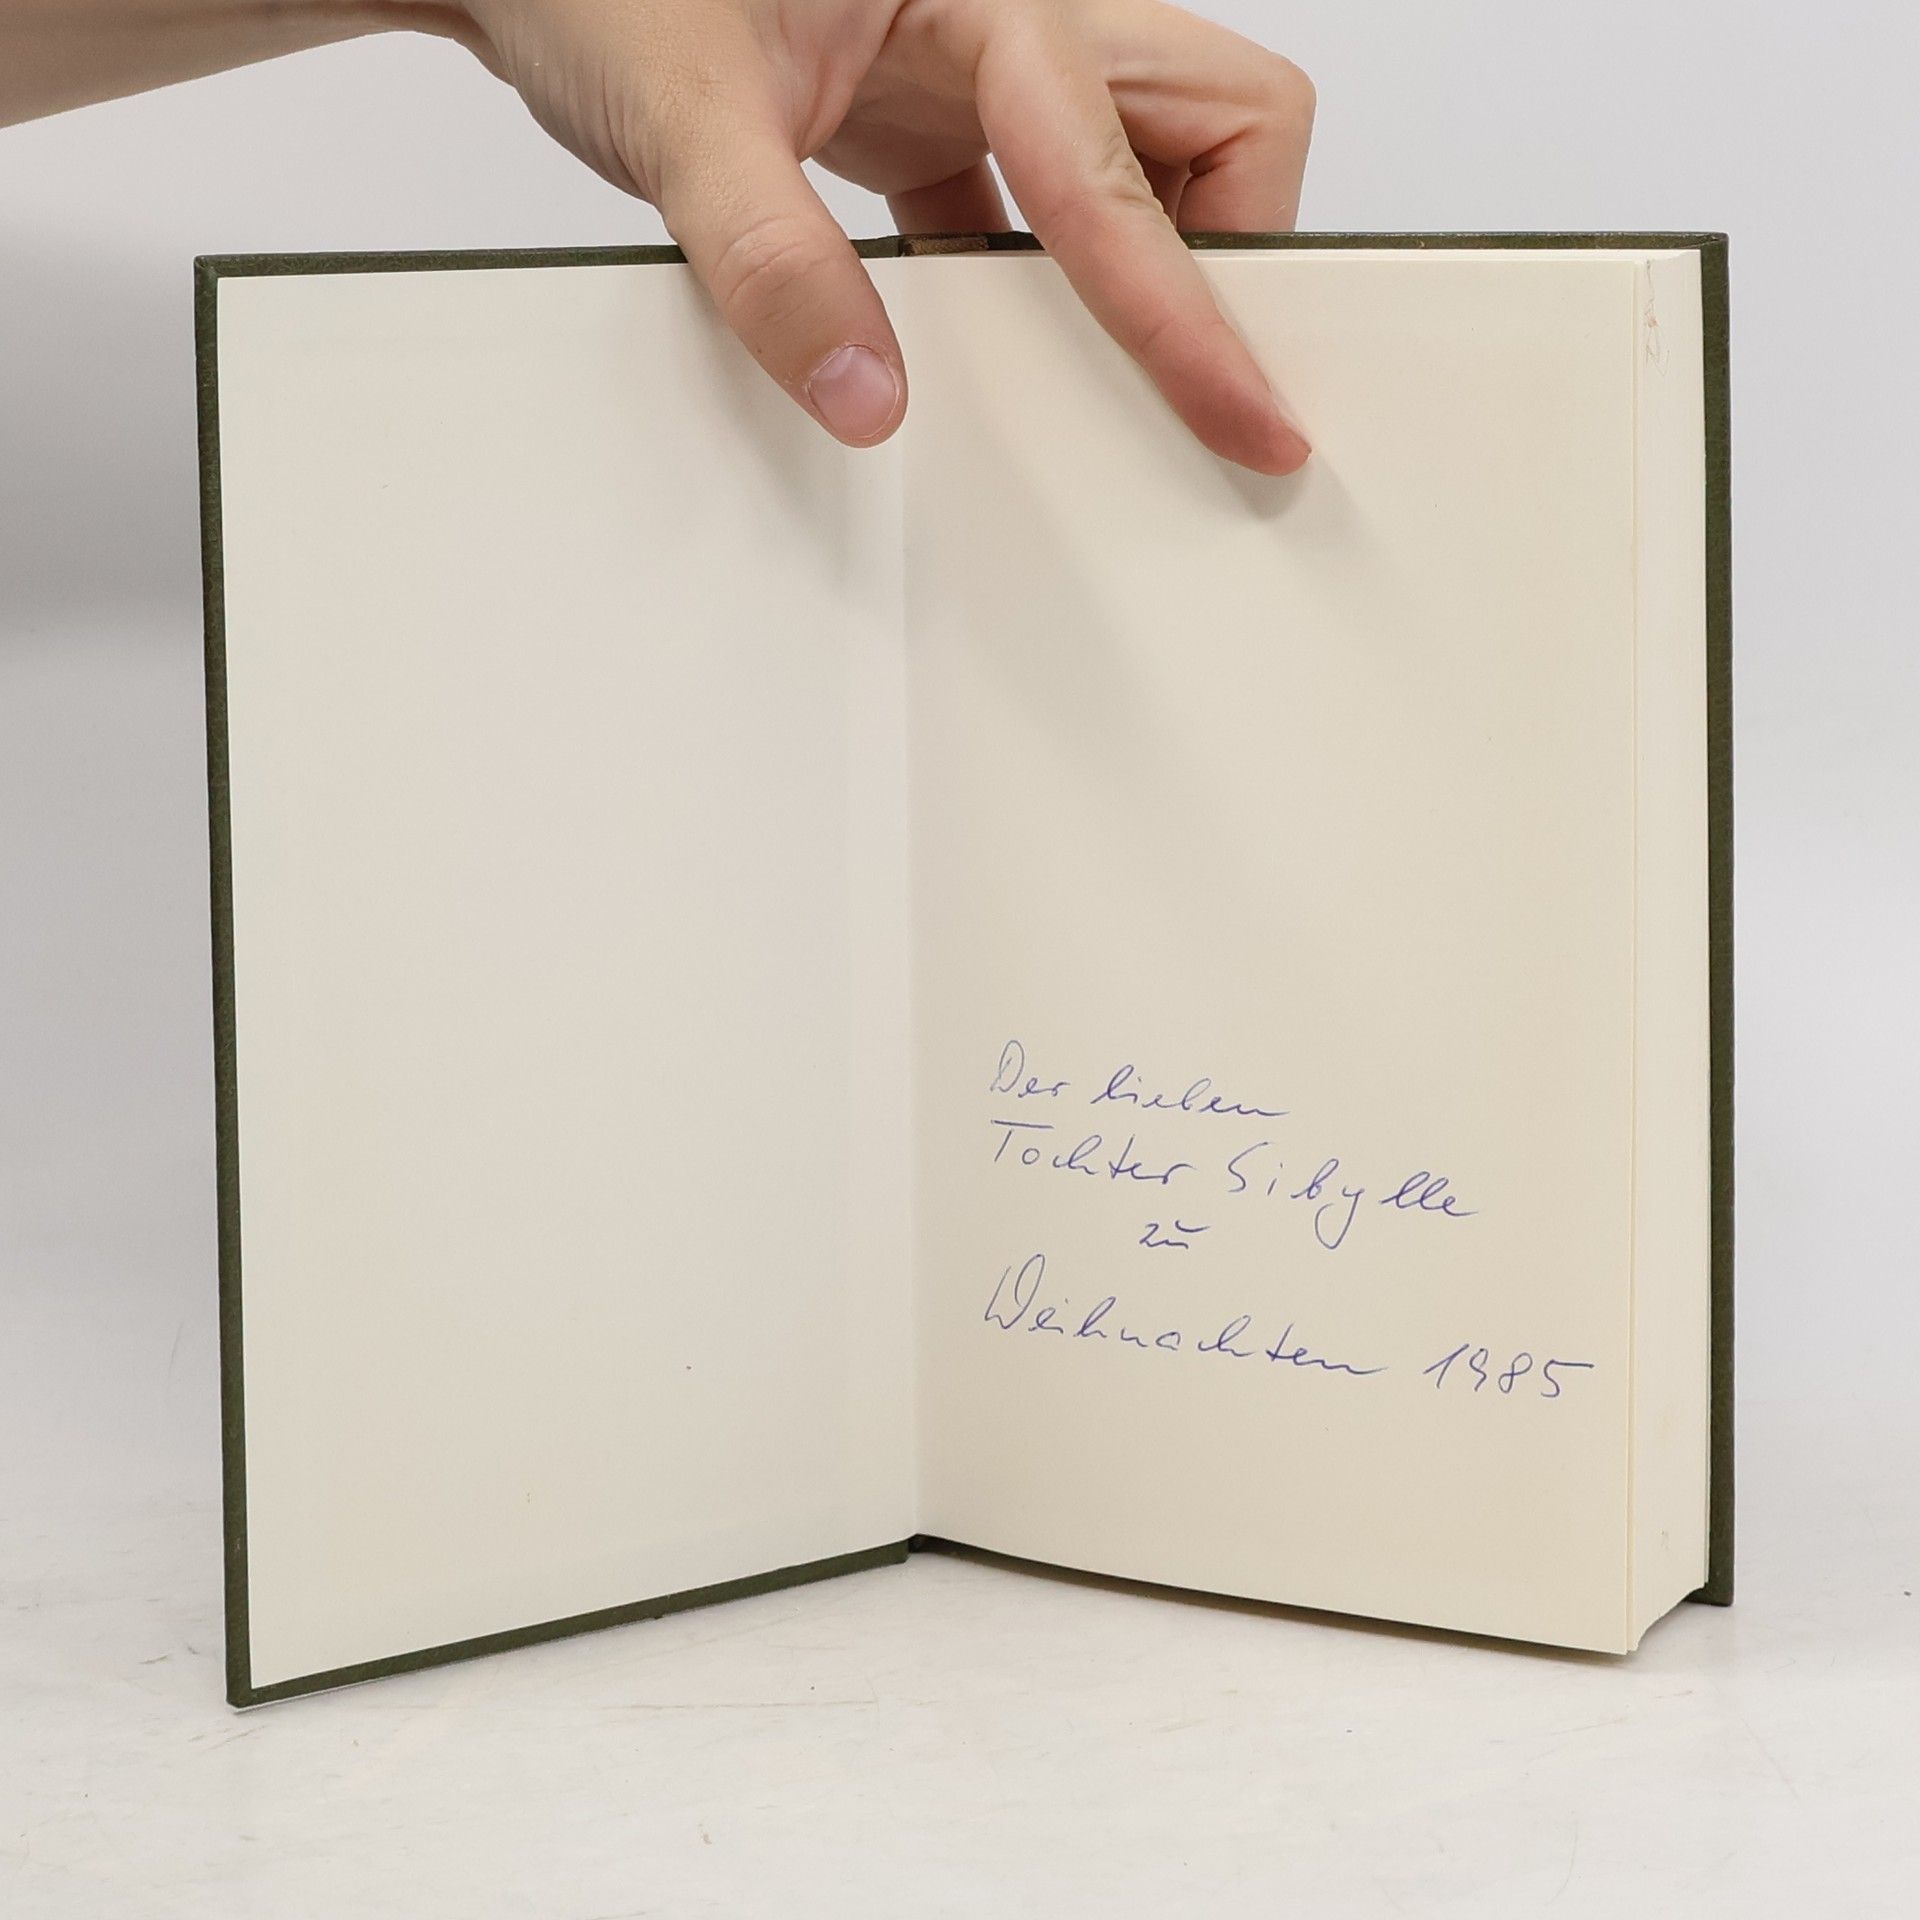 Der lieben
Tochter Sibylle
zu
Weihnachten 1985